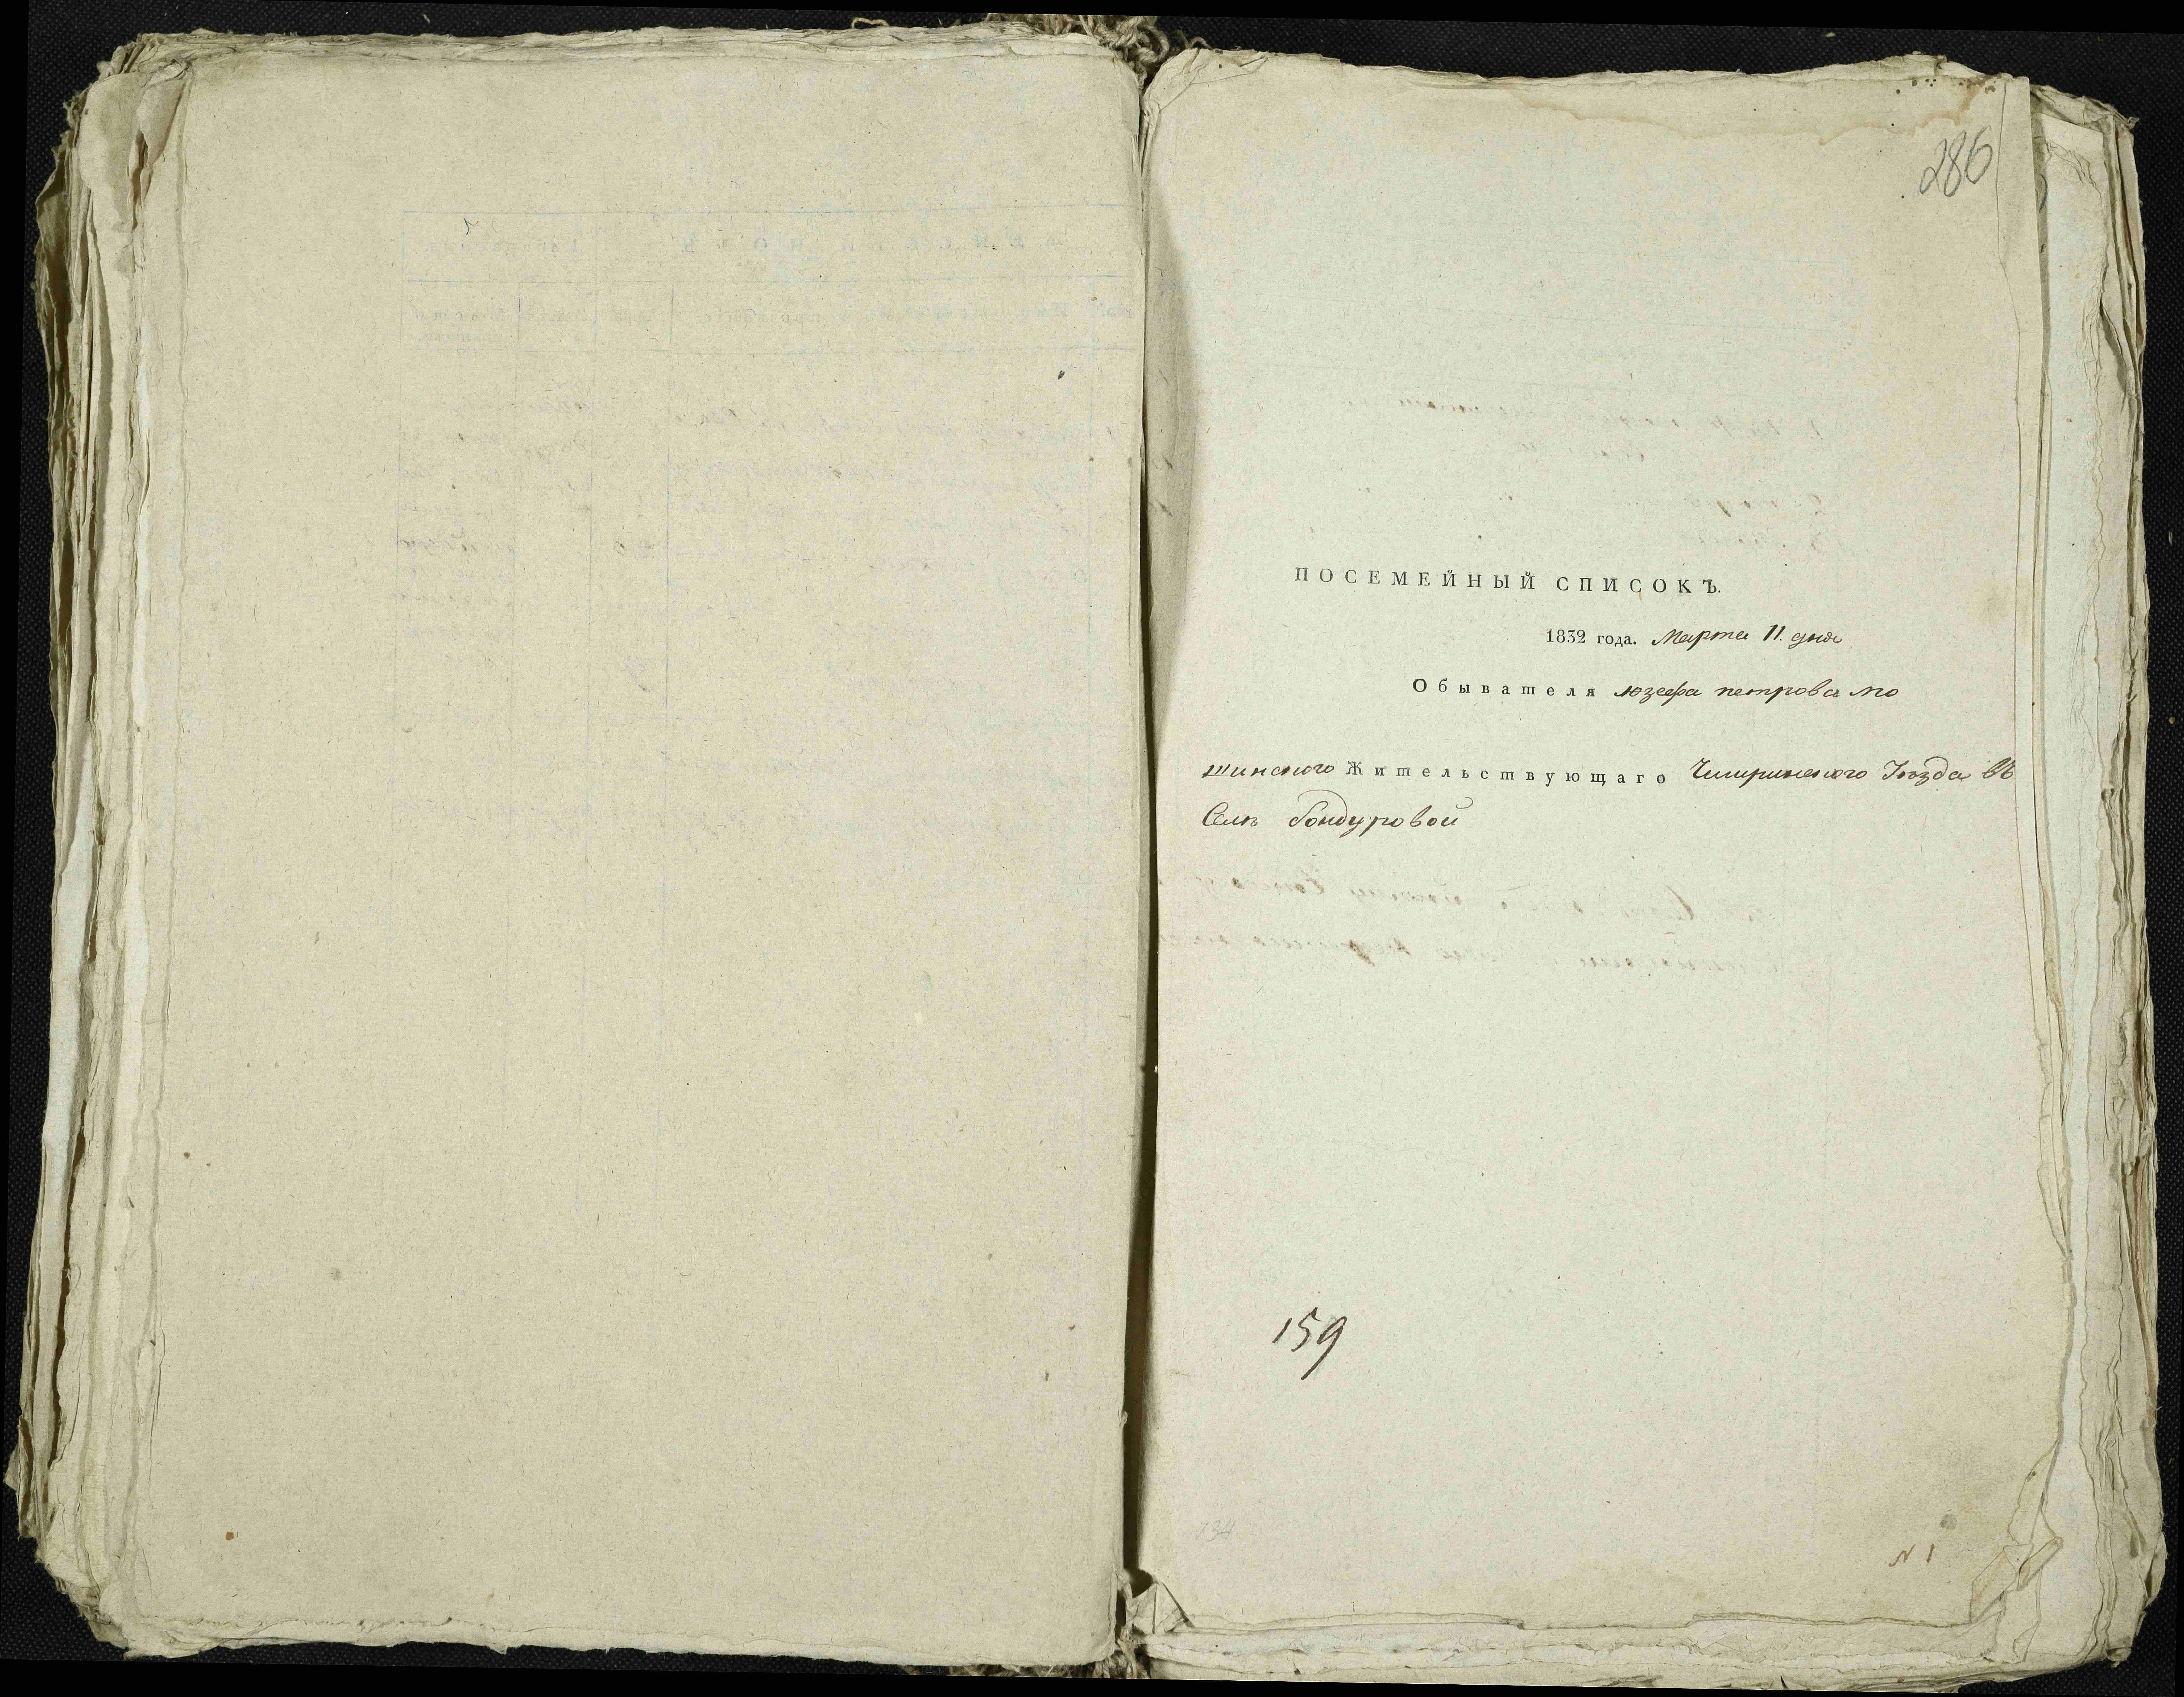 286
ПОСЕМЕЙНЫЙ СПИСОКЪ.
1832 года. Марта 11. дня
Обывателя юзефа петрова мо
шинского Жительствующаго Чигринского Уезда въ
Селѣ бондуровой
159
134
N 1